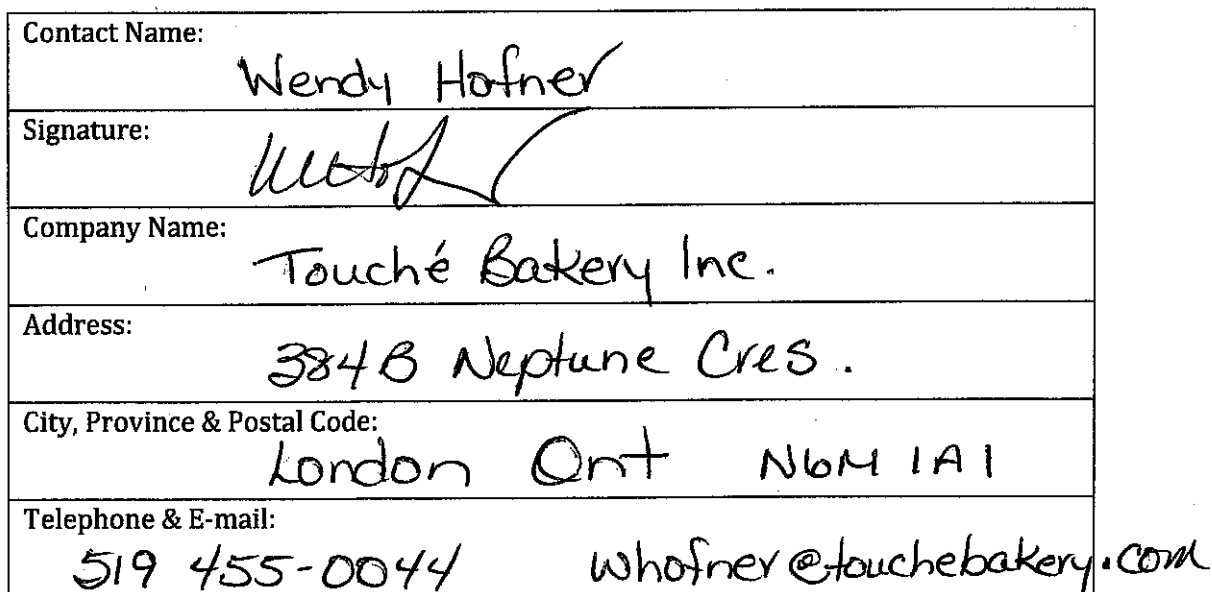 Contact Name:
Wendy Hofner
Signature:
Company Name:
Touché Bakery Inc.
Address:
384B Neptune Cres.
City, Province & Postal Code:
London Ont N6M 1A1
Telephone & E-mail:
519 455-0044 whofner@touchebakery.com